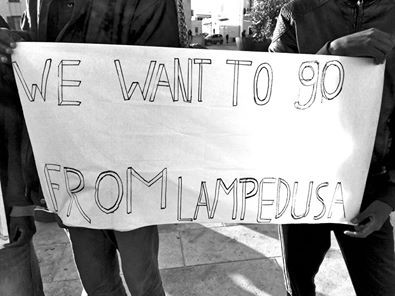 WE WANT TO go
FROM LAMPEDUSA